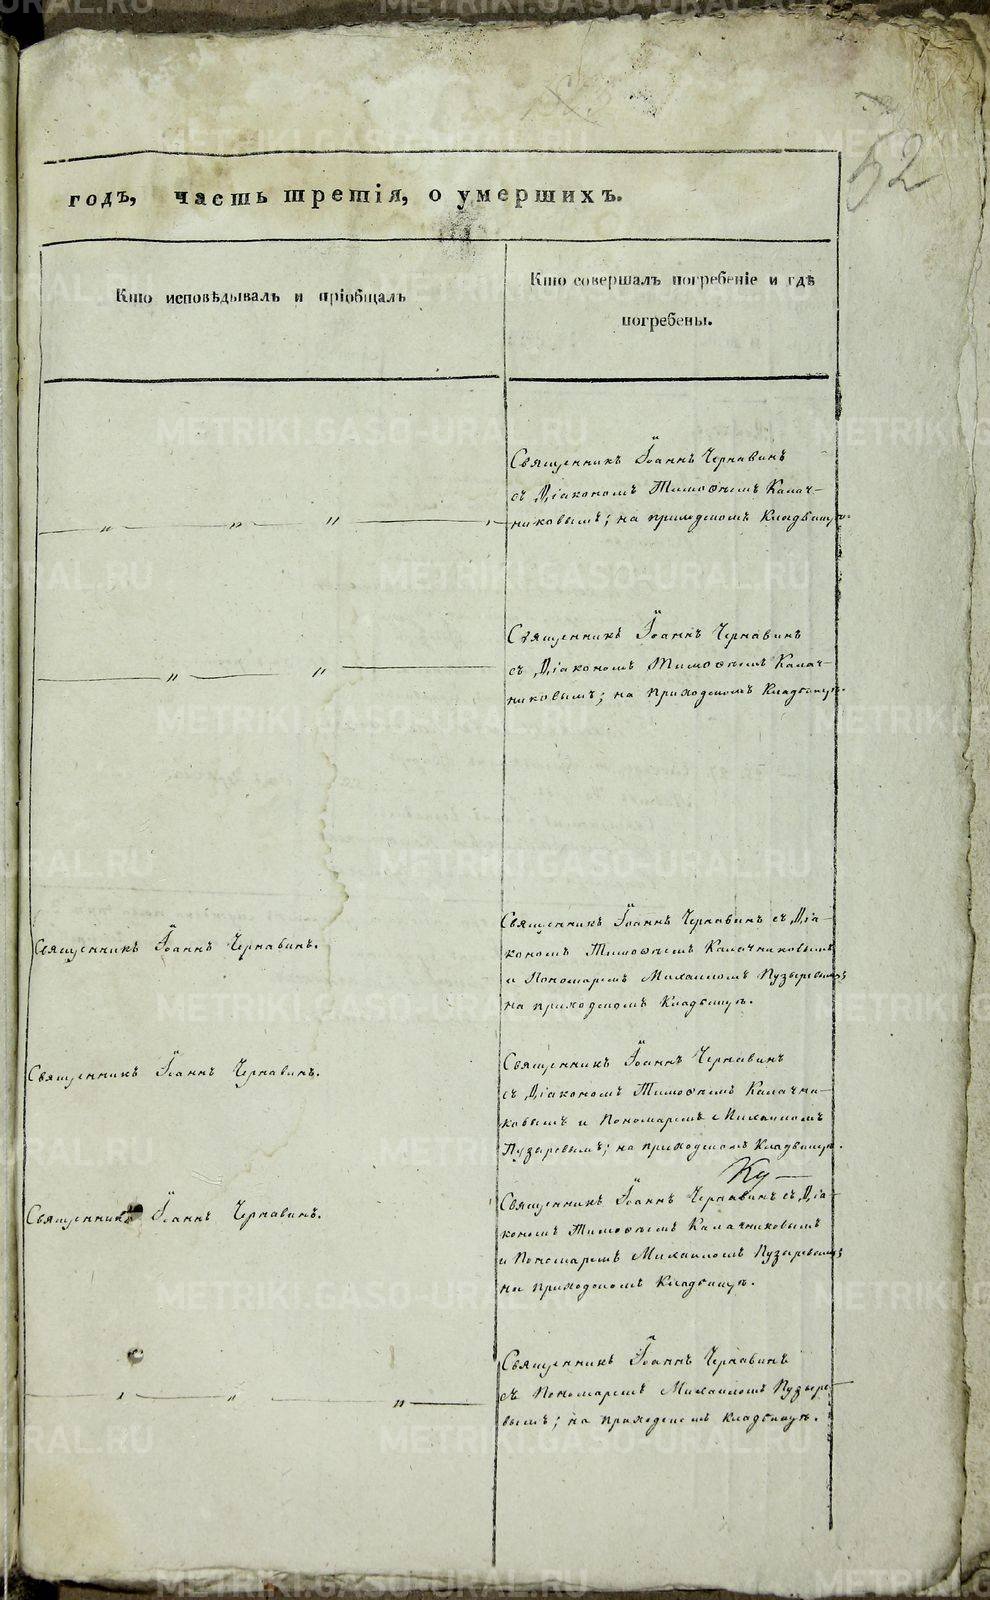 52
годъ, часть третія, о умершихъ.
Кто исповѣдывалъ и пріобщалъ
Кто совершалъ погребеніе и гдѣ
погребены.
Священникъ Іоаннъ Чернавинъ
съ Діакономъ Тимоѳеемъ Калач-
никовымъ; на приходскомъ Кладбищѣ.
Священникъ Іоаннъ Чернавинъ
съ Діакономъ Тимоѳеемъ Калач-
никовымъ; на приходскомъ Кладбищѣ.
Священникъ Іоаннъ Чернавинъ.
Священникъ Іоаннъ Чернавинъ съ Діа-
кономъ Тимоѳеемъ Калачниковымъ
и Пономаремъ Михаиломъ Пузыревымъ;
на приходскомъ Кладбищѣ.
Священникъ Іоаннъ Чернавинъ.
Священникъ Іоаннъ Чернавинъ
съ Діакономъ Тимоѳеемъ Калачни-
ковымъ и Пономаремъ Михаиломъ
Пузыревымъ; на приходскомъ Кладбищѣ.
Священникъ Іоаннъ Чернавинъ.
Священникъ Іоаннъ Чернавинъ съ Діа-
кономъ Тимоѳеемъ Калачниковымъ
и Пономаремъ Михаиломъ Пузыревымъ;
на приходскомъ Кладбищѣ.
Священникъ Іоаннъ Чернавинъ
съ Пономаремъ Михаиломъ Пузыре-
вымъ; на приходскомъ кладбищѣ.
METRIKI.GASO-URAL.RU